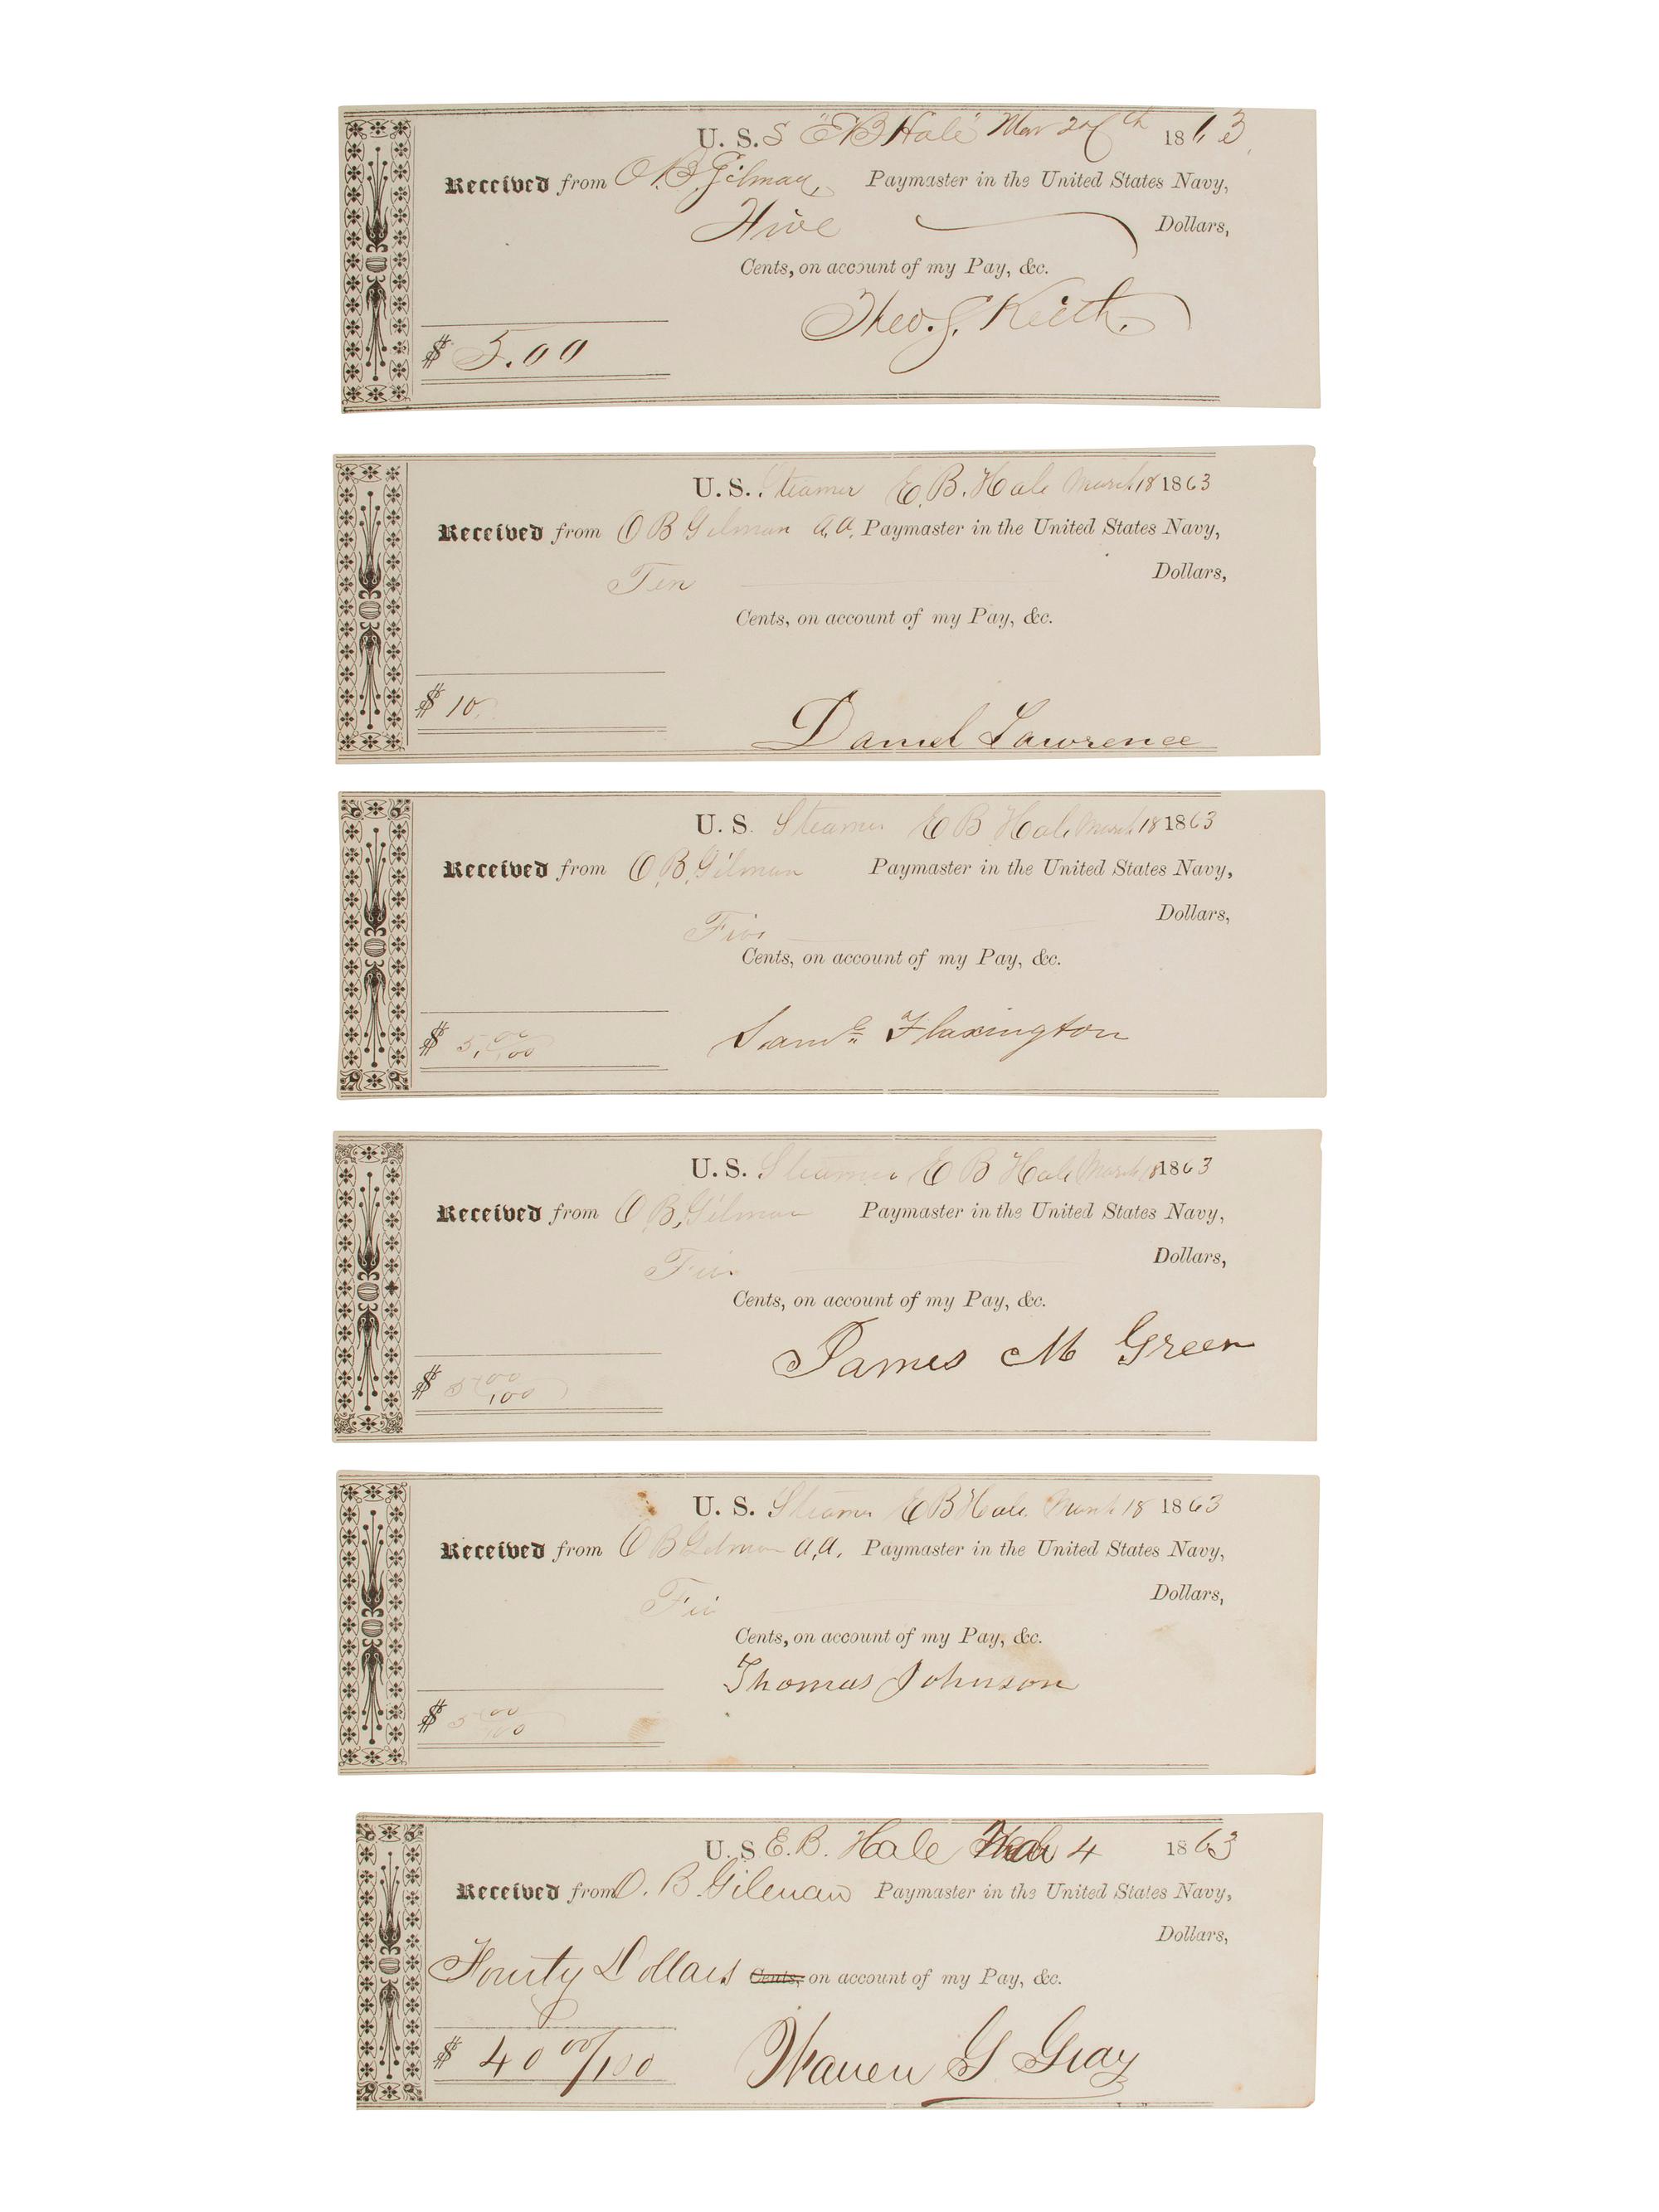 U. S. S "E B Hale" Mar 26th 1863.
Received from O. B. Gilman, Paymaster in the United States Navy,
Five Dollars,
Cents, on account of my Pay, &c.
Theo. G. Keith.
$ 5.00
U. S. Steamer E. B. Hale March 18 1863
Received from O B Gilman A, A, Paymaster in the United States Navy,
Ten Dollars,
Cents, on account of my Pay, &c.
$ 10.
Daniel Lawrence
U. S. Steamer E B Hale March 18 1863
Received from O, B, Gilman Paymaster in the United States Navy,
Five Dollars,
Cents, on account of my Pay, &c.
Saml Flaxington
$ 5, 00/100
U. S. Steamer E B Hale March 18 1863
Received from O B, Gilman Paymaster in the United States Navy,
Five Dollars,
Cents, on account of my Pay, &c.
James M Green
$ 5 00/100
U. S. Steamer E B Hale March 18 1863
Received from O B Gilman A, A, Paymaster in the United States Navy,
Dollars,
Cents, on account of my Pay, &c.
Thomas Johnson
$ 5 00/100
U. S E. B. Hale 4 1863
Received from O. B. Gilman Paymaster in the United States Navy,
Dollars,
Fourty Dollars Cents, on account of my Pay, &c.
$ 40 00/100
Warren G Gray